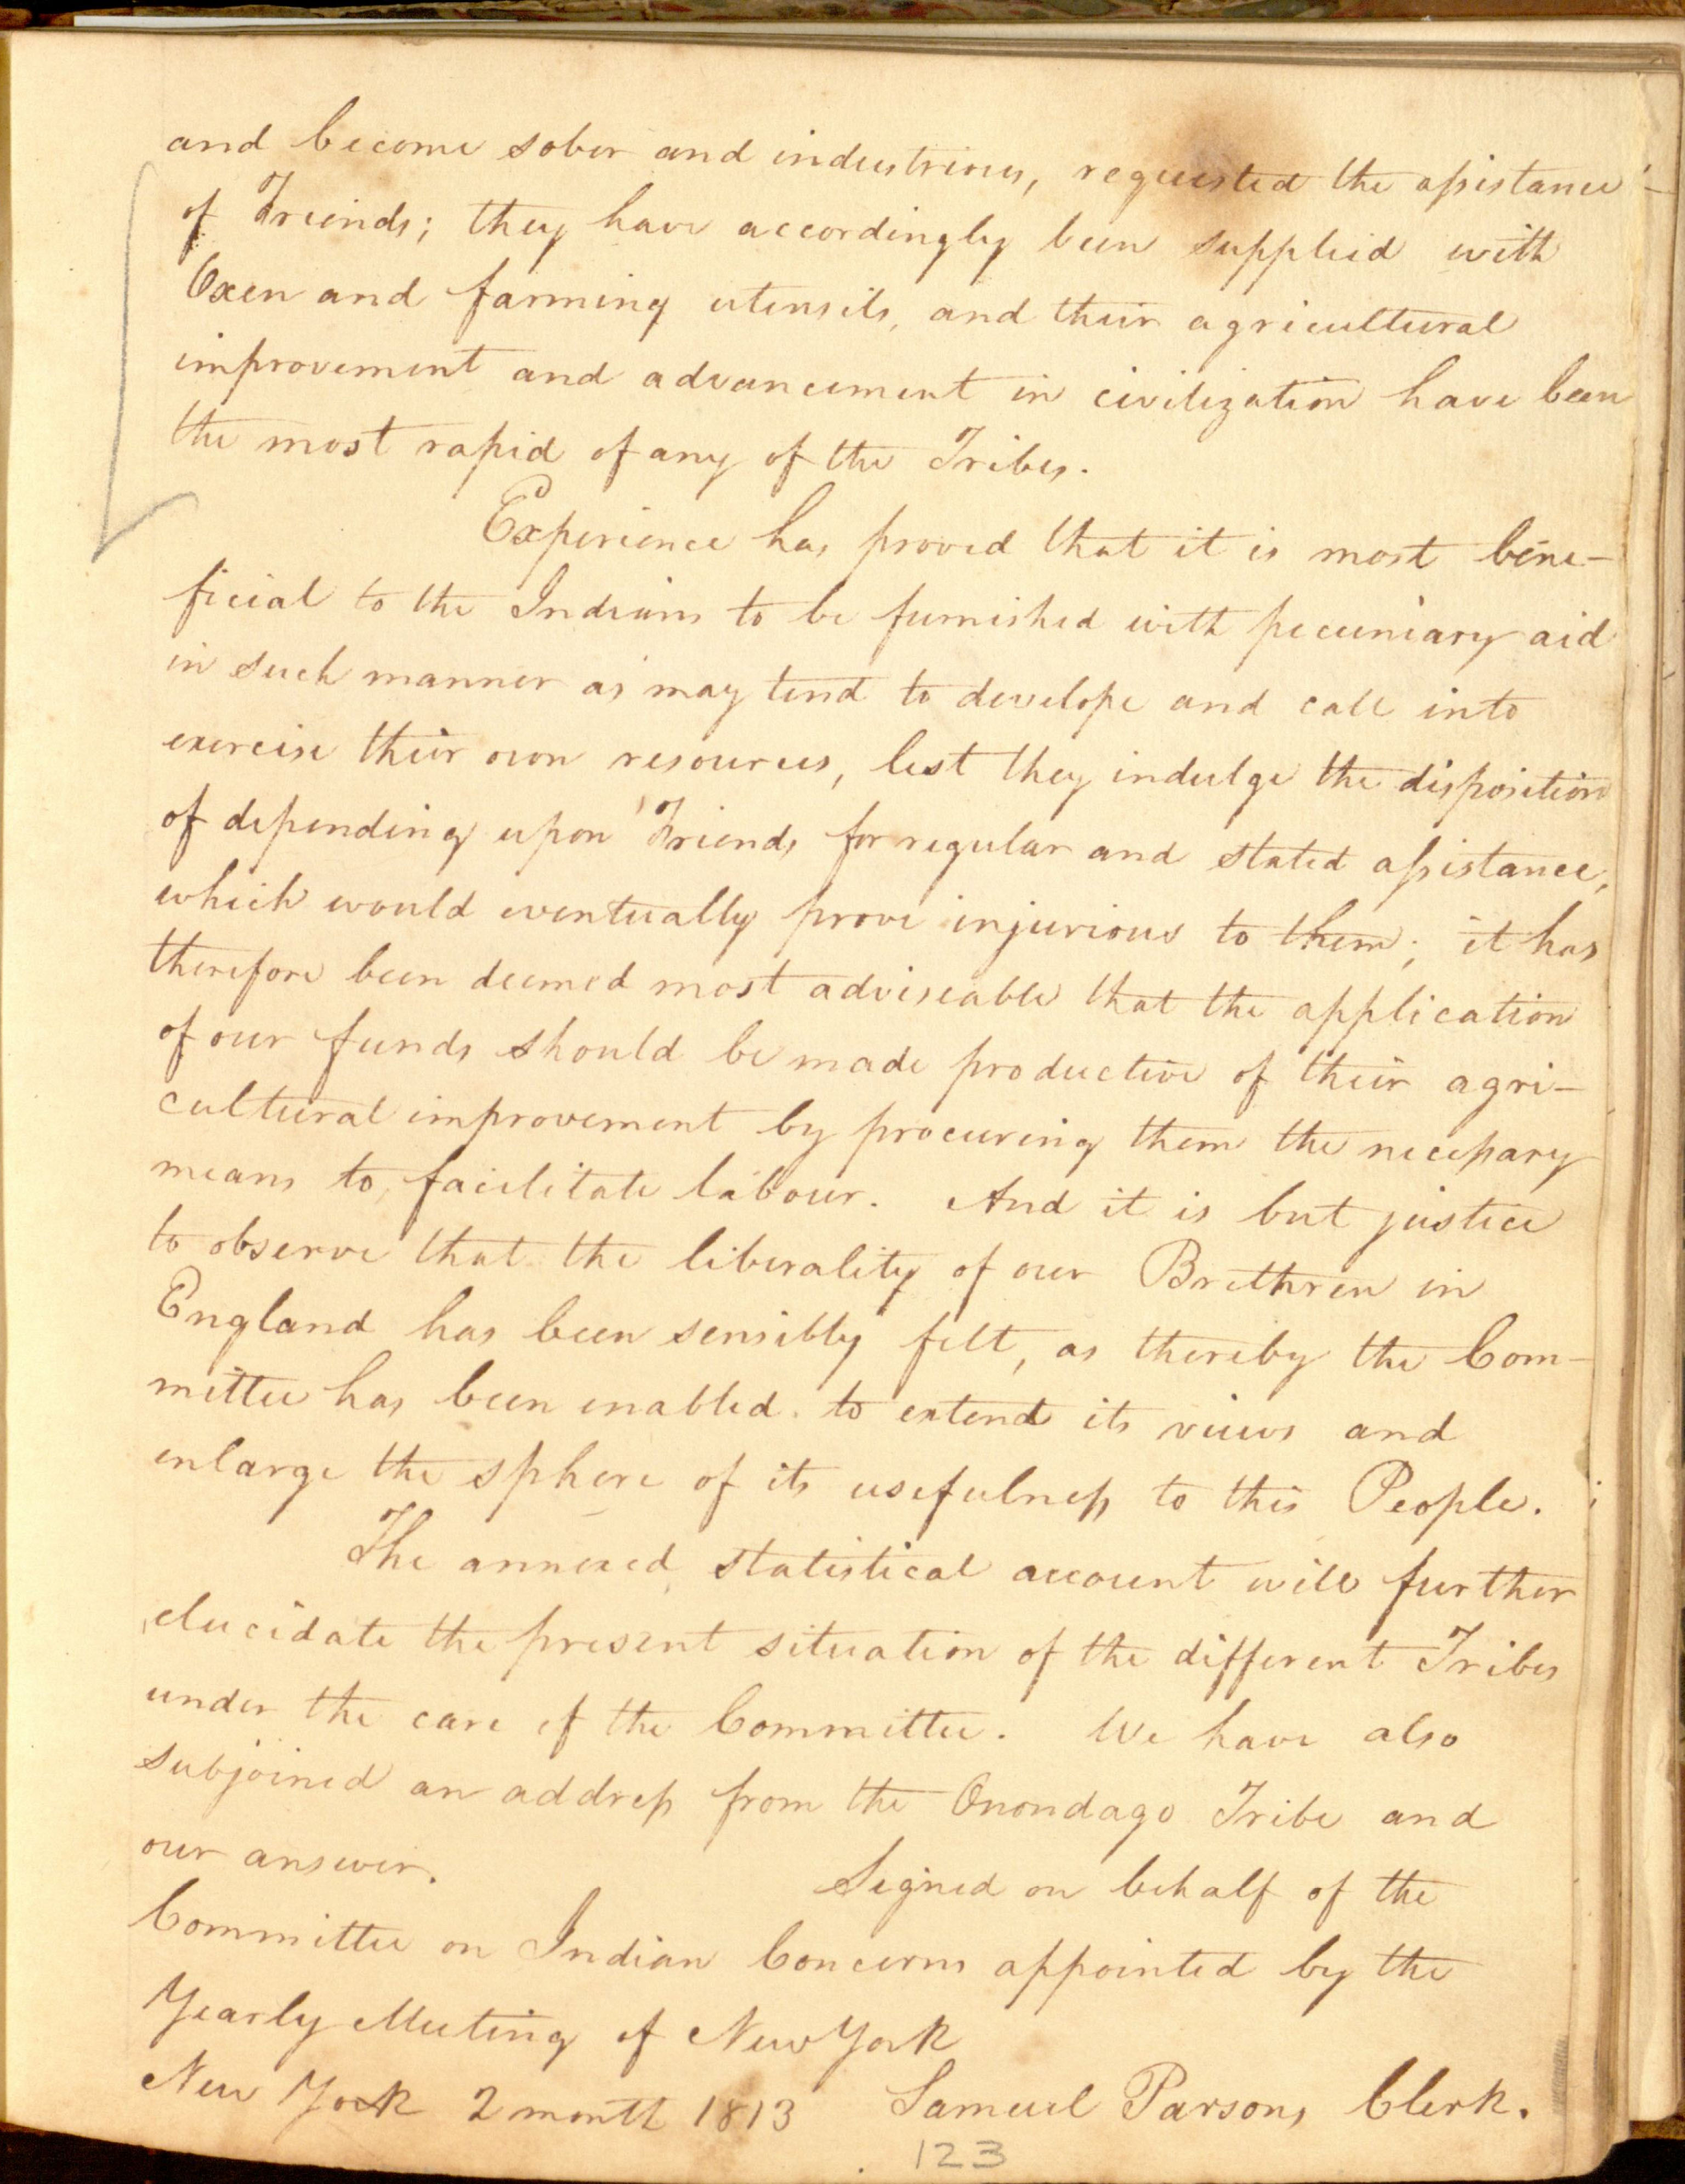 and become sober and industrious, requested the assistance
of Freinds; they have accordingly been supplied with
Oxen and farming utensils, and their agricultural
improvement and advancement in civilization have been
the most rapid of any of the Tribes.
Experience has proved that it is most bene-
ficial to the Indians to be furnished with pecuniary aid
in such manner as may tend to develope and call into
exercise their own resources, lest they indulge the disposition
of depending upon Friends for regular and stated assistance,
which would eventually prove injurious to them; it has
therefore been deemed most adviseable that the application
of our funds should be made productive of their agri-
cultural improvement by procuring them the necessary
means to facilitate labour. And it is but justice
to observe that the liberality of our Brethren in
England has been sensibly felt, as thereby the Com-
mittee has been enabled to extend its views and
enlarge the sphere of its usefulness to this People.
The annexed statistical account will further
elucidate the present situation of the different Tribes
under the care of the Committee. We have also
subjoined an address from the Onondago Tribe and
our answer.
Signed on behalf of the
Committee on Indian Concerns appointed by the
Yearly Meeting of New York
New York 2 month 1813 Samuel Parsons Clerk.
123